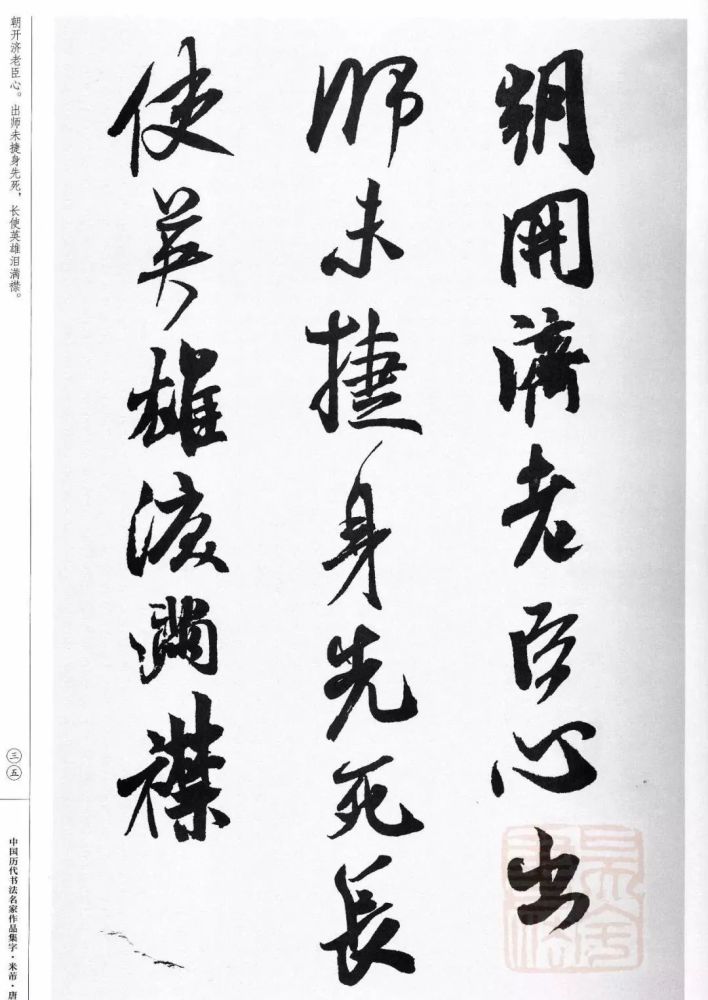 朝開濟老臣心出
師未捷身先死長
使英雄淚滿襟
朝开济老臣心。出师未捷身先死，长使英雄泪满襟。
三五
中国历代书法名家作品集字·米芾·唐